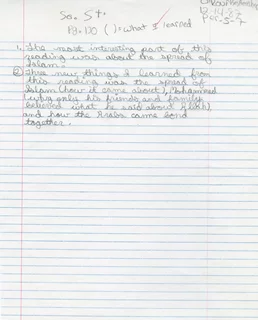 So. St.
what I learned
1. The most interesting part of this
reading was about the spread of
Islam.
2. Three new things I learned from
this reading was the spread of
Islam (how it came about), Mohammed
(why only his friends and family
believed what he said about Allah)
and how the Arabs came bond
together.